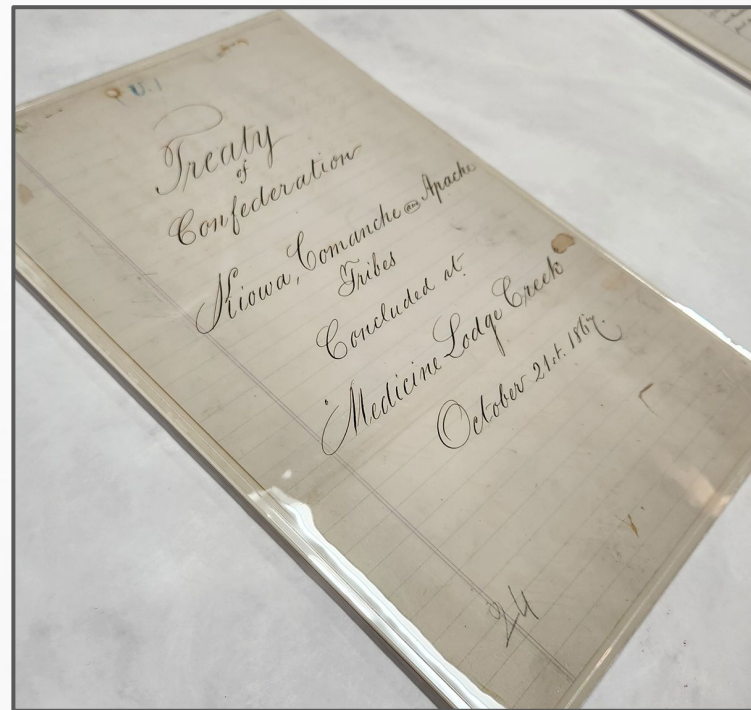 U.1
Treaty
of
Confederation
Kiowa, Comanche and Apache
Tribes
Concluded at
Medicine Lodge Creek
October 21st. 1867.
24